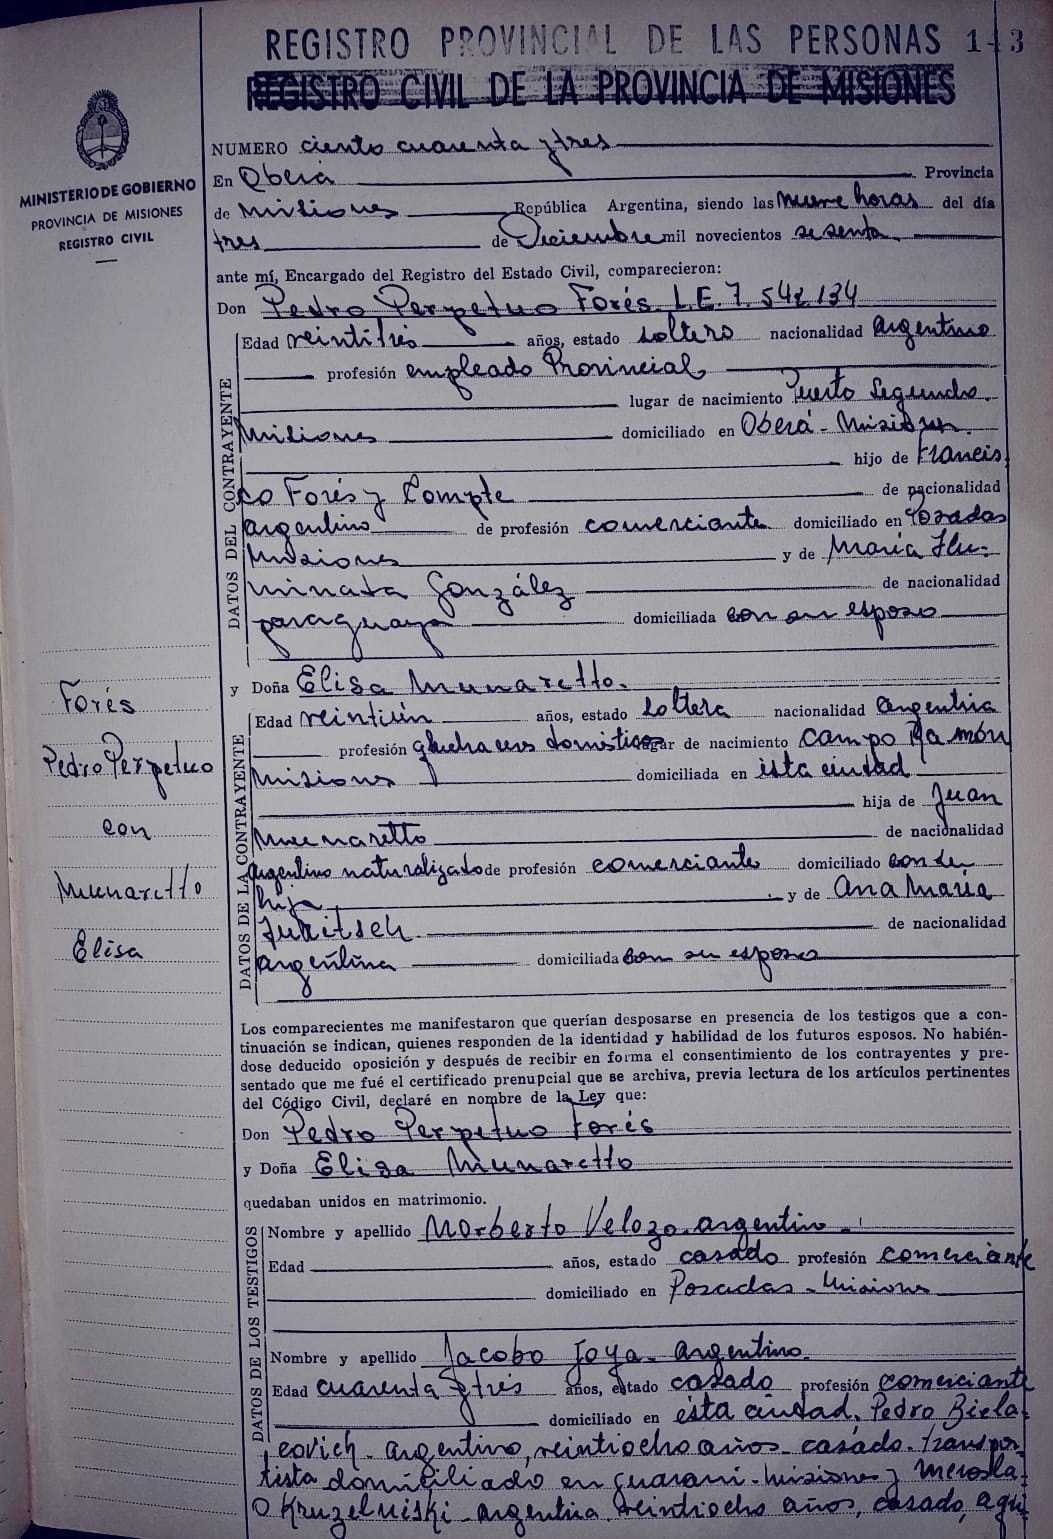 REGISTRO PROVINCIAL DE LAS PERSONAS 143
REGISTRO CIVIL DE LA PROVINCIA DE MISIONES
MINISTERIO DE GOBIERNO
PROVINCIA DE MISIONES
REGISTRO CIVIL
NUMERO ciento cuarenta y tres
En Oberá Provincia
de Misiones República Argentina, siendo las nueve horas del día
tres de Diciembre mil novecientos sesenta
ante mí, Encargado del Registro del Estado Civil, comparecieron:
Don Pedro Perpetuo Forés L.E. 7.542.134
DATOS DEL CONTRAYENTE
Edad veintitrés años, estado soltero nacionalidad argentino
profesión empleado Provincial
lugar de nacimiento Puerto Segundo
Misiones domiciliado en Oberá - Misiones.
hijo de Francis
co Forés y Compte de nacionalidad
argentino de profesión comerciante domiciliado en Posadas
Misiones y de María Ilu-
minata González de nacionalidad
paraguaya domiciliada con su esposo
y Doña Elisa Munaretto.
DATOS DE LA CONTRAYENTE
Edad veintiún años, estado soltera nacionalidad argentina
profesión quehaceres domésticos lugar de nacimiento Campo Ramón
Misiones domiciliada en ésta ciudad
hija de Juan
Munaretto de nacionalidad
argentino naturalizado de profesión comerciante domiciliado con su
hija y de Ana María
de nacionalidad
argentina domiciliada con su esposo
Forés
Pedro Perpetuo
con
Munaretto
Elisa
Los comparecientes me manifestaron que querían desposarse en presencia de los testigos que a con-
tinuación se indican, quienes responden de la identidad y habilidad de los futuros esposos. No habién-
dose deducido oposición y después de recibir en forma el consentimiento de los contrayentes y pre-
sentado que me fué el certificado prenupcial que se archiva, previa lectura de los artículos pertinentes
del Código Civil, declaré en nombre de la Ley que:
Don Pedro Perpetuo Forés
y Doña Elisa Munaretto
quedaban unidos en matrimonio.
DATOS DE LOS TESTIGOS
Nombre y apellido Norberto Velozo argentino
Edad años, estado casado profesión comerciante
domiciliado en Posadas - Misiones
Nombre y apellido Jacobo Joya - argentino.
Edad cuarenta y tres años, estado casado profesión comerciante
domiciliado en ésta ciudad, Pedro Biela-
covich - argentino, veintiocho años - casado - transpor-
tista domiciliado en Guaraní - Misiones y Merosla-
o argentino veintiocho años, casado, agri